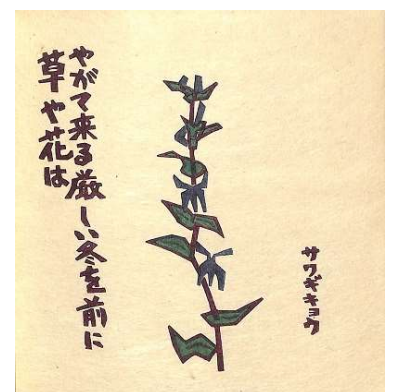 サワギキョウ
やがて来る厳しい冬を前に
草や花は